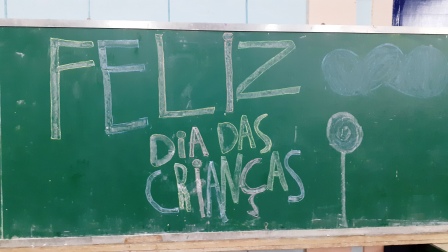 FELIZ
DIA DAS
CRIANÇAS